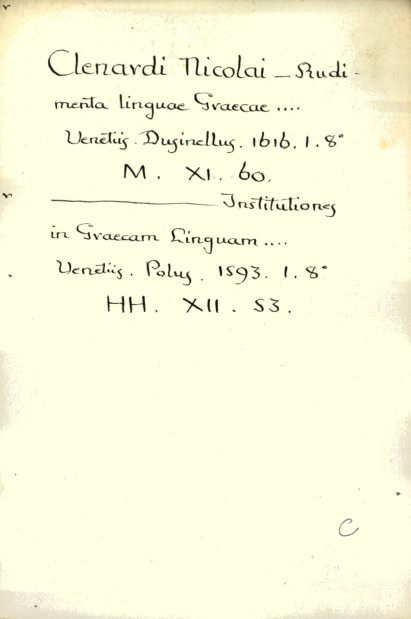 Clenardi Nicolai – Rudi-
menta linguae Graecae ....
Venetiis. Dusinellus. 1616. 1. 8°
M. XI. 60.
———— Institutiones
in Graecam Linguam ....
Venetiis. Polus. 1593. 1. 8°
HH. XII. 53.
C